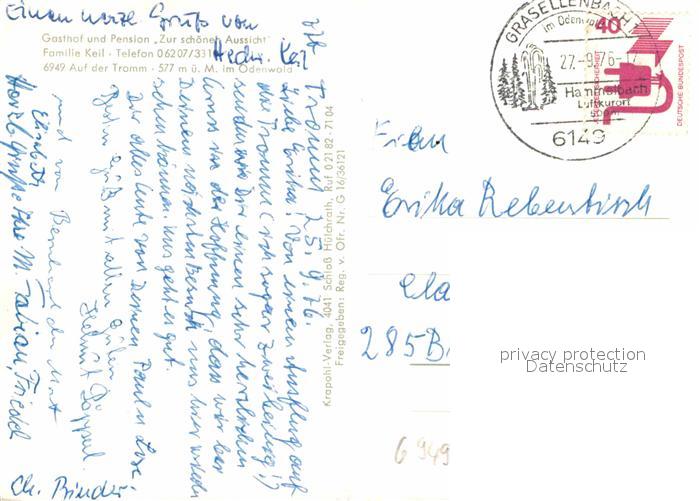 Einen herzl. Gruß von
Hedw. Keil
Gasthof und Pension „Zur schönen Aussicht"
Familie Keil - Telefon 06207/331
6949 Auf der Tromm - 577 m ü. M. im Odenwald
Tromm 25.9.76.
Liebe Erika! Von einem Ausflug auf
die Tromm (ich sogar zweimalig!)
senden wir Dir einen sehr herzlichen
Gruß in der Hoffnung, dass wir bei
Deinem nächsten Besuch uns hier wieder
sehen können. Uns geht es gut.
Dir alles Gute von Deinen Paul u. Lore
Helmut Döppel
und von Bernhard
Elisabeth
Herzl. Grüße Ihre M. Fabian, Friedel
Ch. Binder
Krapohl-Verlag, 4041 Schloß Hülchrath, Ruf 0 21 82 - 71 04
Freigegeben: Reg. v. Ofr. Nr. G 16/36121
GRASELLENBACH 1
im Odenwald
27.-9.76-17
Hammelbach
Luftkurort
6149
40
DEUTSCHE BUNDESPOST
Frau
Erika Rebentisch
Cla
285 B
6949
privacy protection
Datenschutz